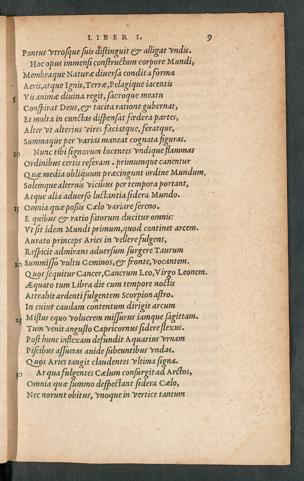 LIBER I. 9
Pontus vtrosque suis distinguit & alligat vndis.
Hoc opus immensi constructum corpore Mundi,
Membraque Naturæ diuersa condita forma
Aeris, atque Ignis, Terræ, Pelagique iacentis
5 Vis animæ diuina regit, sacroque meatu
Conspirat Deus, & tacita ratione gubernat,
Et multa in cunctas dispensat fœdera partes,
Alter vt alterius vires faciatque, feratque,
Summaque per varias maneat cognata figuras.
10 Nunc tibi signorum lucentes vndique flammas
Ordinibus certis referam. primumque canentur
Quæ media obliquum præcingunt ordine Mundum,
Solemque alternis vicibus per tempora portant,
Atque alia aduerso luctantia sidera Mundo.
15 Omnia quæ possis Cælo variare sereno.
E quibus & ratio fatorum ducitur omnis:
Vt sit idem Mundi primum, quod continet arcem.
Aurato princeps Aries in vellere fulgens,
Respicit admirans aduersum surgere Taurum
20 Summisso vultu Geminos, & fronte, vocantem.
Quos sequitur Cancer, Cancrum Leo, Virgo Leonem.
Æquato tum Libra die cum tempore noctis
Attrahit ardenti fulgentem Scorpion astro.
In cuius caudam contentum dirigit arcum
25 Mistus equo volucrem missurus iamque sagittam.
Tum venit angusto Capricornus sidere flexus.
Post hunc inflexam defundit Aquarius vrnam
Piscibus assuetas auide subeuntibus vndas.
Quos Aries tangit claudentes vltima signa.
30 At qua fulgentes Cælum consurgit ad Arctos,
Omnia quæ summo despectant sidera Cælo,
Nec norunt obitus, vnoque in vertice tantum